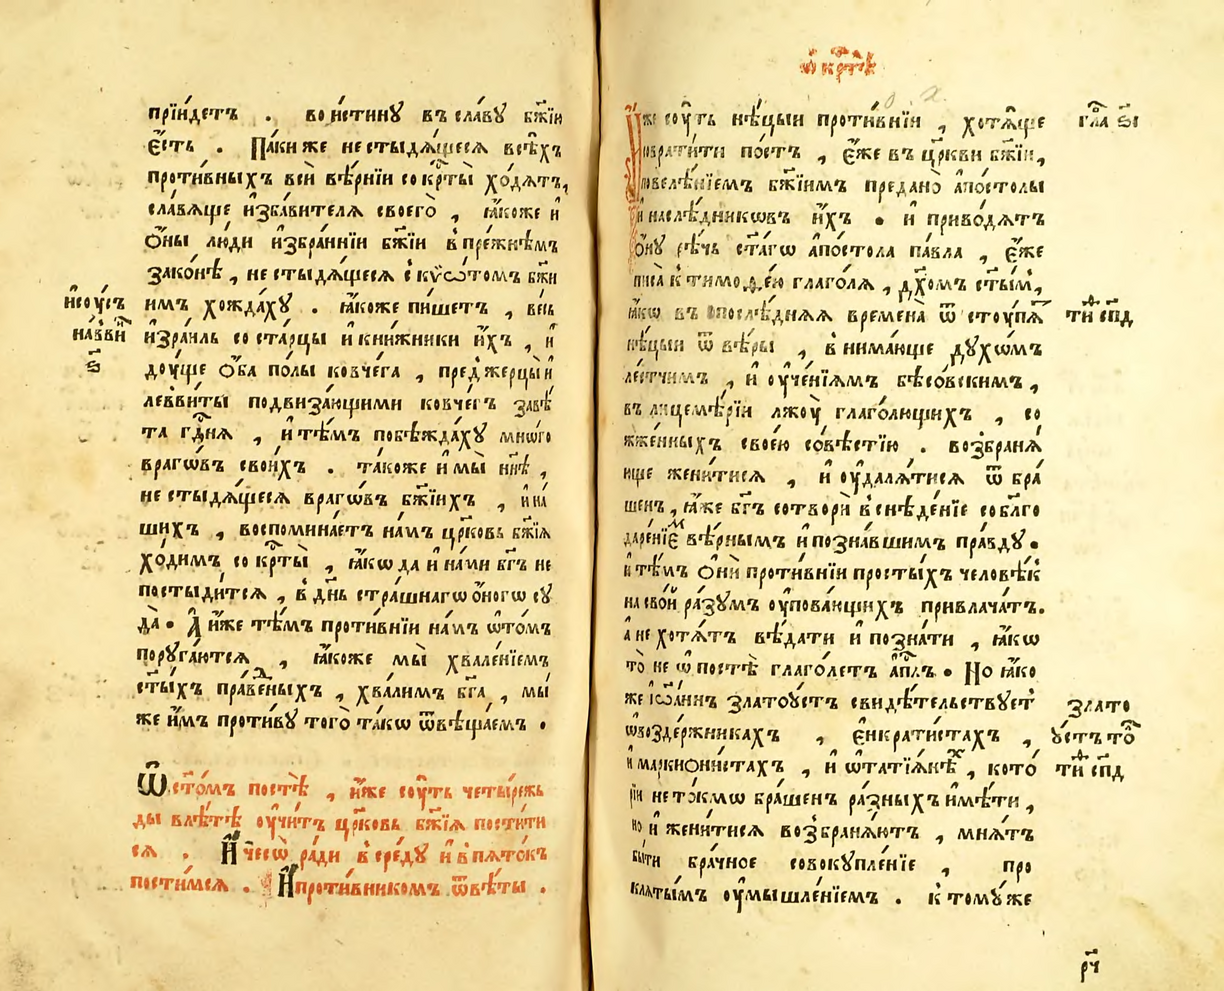 прїи́детъ . вои́стинꙋ въ сла́вꙋ бж҃їи
є҆́сть . Па́ки же не стыдѧ́щесѧ всѣ́хъ
проти́вныхъ всѝ вѣ́рнїи со кр҃ты̀ хо́дѧтъ,
сла́вѧще и҆зба́вителѧ своегѡ̀ , ꙗ҆́коже и҆
ѻ҆́ны лю́ди и҆збра́ннїи бж҃їи в̾ пре́жнѣмъ
зако́нѣ , не стыдѧ́щесѧ с̾ кївѡ́томъ бж҃їи
имъ хожда́хꙋ . ꙗ҆́коже пи́шетъ , ве́сь
и҆сꙋ́съ
нави́нъ
ѕ҃
и҆зра́иль со ста́рцы и҆ кни́жники и҆́хъ , и҆
дꙋ́ще ѻ҆́ба по́лы ковче́га , пред̾ жерцы̀ и҆
левви́ты подвиза́ющими ковче́гъ завѣ́
та гд҇нѧ , и҆ тѣ́мъ побѣжда́хꙋ мно́го
врагѡ́въ свои́хъ . та́коже и҆ мы̀ нн҃ѣ ,
не стыдѧ́щесѧ врагѡ́въ бж҃їихъ , и҆ на́
шихъ , воспомина́етъ на́мъ цр҃ковь бж҃їѧ
хо́димъ со кр҃ты̀ , ꙗ҆́кѡ да и҆ на́ми бг҃ъ не
постыди́тсѧ , в̾ дн҃ь стра́шнагѡ ѻ҆́ногѡ сꙋ
да̀ . А҆ и҆́же тѣ́мъ проти́внїи на́мъ ѡ҆ то́мъ
порꙋга́ютсѧ , ꙗ҆́коже мы̀ хвале́нїемъ
ст҃ы́хъ пра́ведныхъ , хва́лимъ бг҃а , мы́
же и҆̀мъ проти́вꙋ того̀ та́кѡ ѿвѣща́емъ .
Ѡ҆ ст҃о́мъ постѣ̀ , и҆́же сꙋ́ть четы́режь
ды в̾ лѣ́тѣ ᲂу҆чи́тъ цр҃ковь бж҃їѧ пости́ти
сѧ . И҆ чесѡ̀ ра́ди в̾ сре́дꙋ и҆ в̾ пѧто́къ
пости́мсѧ . И҆ проти́вникомъ ѿвѣ́ты .
ѡ҆ кр҃тѣ̀
И҆́же сꙋ́ть нѣ́цыи проти́внїи , хотѧ́ще
гла҃ ѕ҃і
преврати́ти по́стъ , є҆́же въ цр҃кви бж҃їи,
повелѣ́нїемъ бж҃їимъ пре́дано а҆по́столы
и҆ наслѣ́дникѡвъ и҆́хъ . и҆ приво́дѧтъ
ѻ҆́нꙋ рѣ́чь ст҃а́гѡ а҆по́стола па́вла , є҆́же
писа̀ к̾ тимоѳе́ю глаго́лѧ , дх҃омъ ст҃ы́м,
ꙗ҆́кѡ въ послѣ́днѧѧ времена̀ ѿстꙋ́пѧт
ти҃ сп҃д
нѣ́цыи ѿ вѣ́ры , внима́юще дꙋ́хѡмъ
ле́стчимъ , и҆ ᲂу҆че́нїѧмъ бѣсо́вскимъ ,
въ лицемѣ́рїи лжꙋ̀ глаго́лющихъ , со
жже́нныхъ свое́ю со́вѣстїю . возбранѧ́
юще жени́тисѧ , и҆ ᲂу҆далѧ́тисѧ ѿ бра́
шенъ , ꙗ҆́же бг҃ъ сотворѝ в̾ снѣде́нїе со бл҃го
даре́нїем вѣ́рнымъ и҆ позна́вшимъ пра́вдꙋ .
и҆ тѣ́мъ ѻ҆нѝ проти́внїи просты́хъ человѣ́к
на сво́й ра́зꙋмъ ᲂу҆пова́ющихъ привлача́тъ.
а҆ не хотѧ́тъ вѣ́дати и҆ позна́ти , ꙗ҆́кѡ
то̀ не ѡ҆ постѣ̀ глаго́летъ а҆пⷭ҇лъ . Но ꙗ҆́ко
же і҆ѡа́ннъ златоꙋ́стъ свидѣ́тельствꙋет
злато
ꙋ́стъ то҃
ти҃ сп҃д
ѡ҆ возде́ржникахъ , є҆нкрати́стахъ ,
и҆ маркиони́стахъ , и҆ ѡ҆ татїа́нѣх , кото́
рїи не то́кмѡ бра́шенъ ра́зныхъ и҆мѣ́ти ,
но и҆ жени́тисѧ возбранѧ́ютъ , мнѧ́тъ
бы́ти бра́чное совокꙋпле́ніе , про
клѧ́тымъ ᲂу҆мышле́нїемъ . к̾ томꙋ́же
рч҃